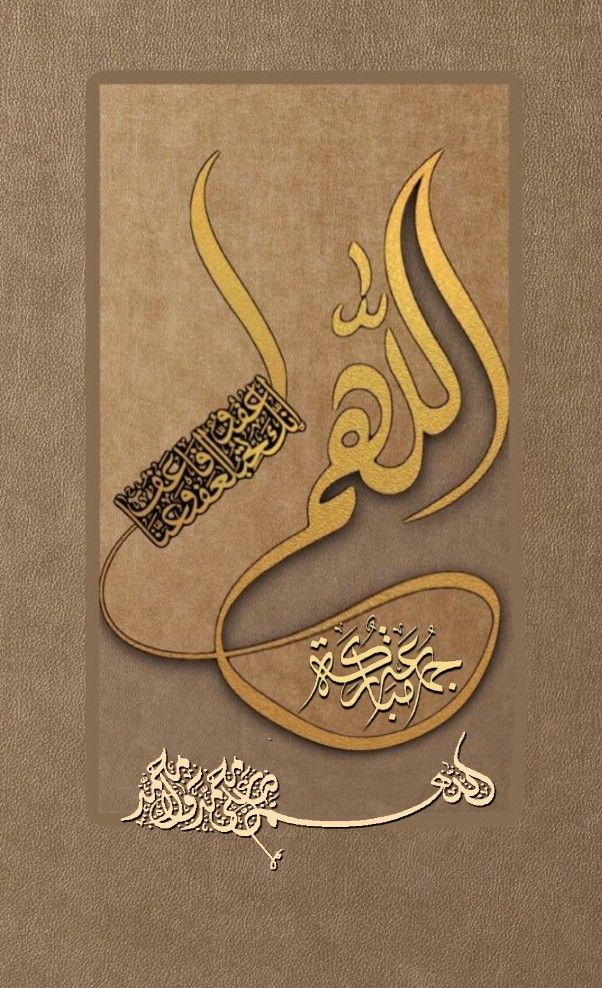 اللهم
إنك عفو تحب العفو فاعف عنا
جمعة مباركة
اللهم صل على محمد وآل محمد